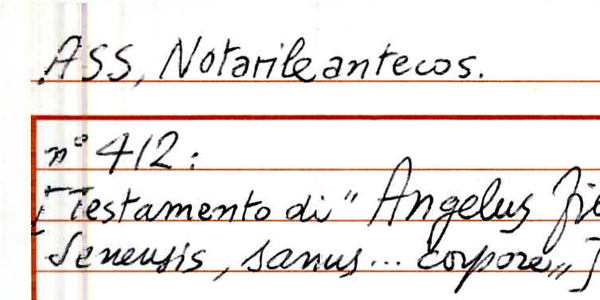 ASS, Notarile antecos.
n° 412:
[Testamento di "Angelus
Senensis, sanus... corpore"]